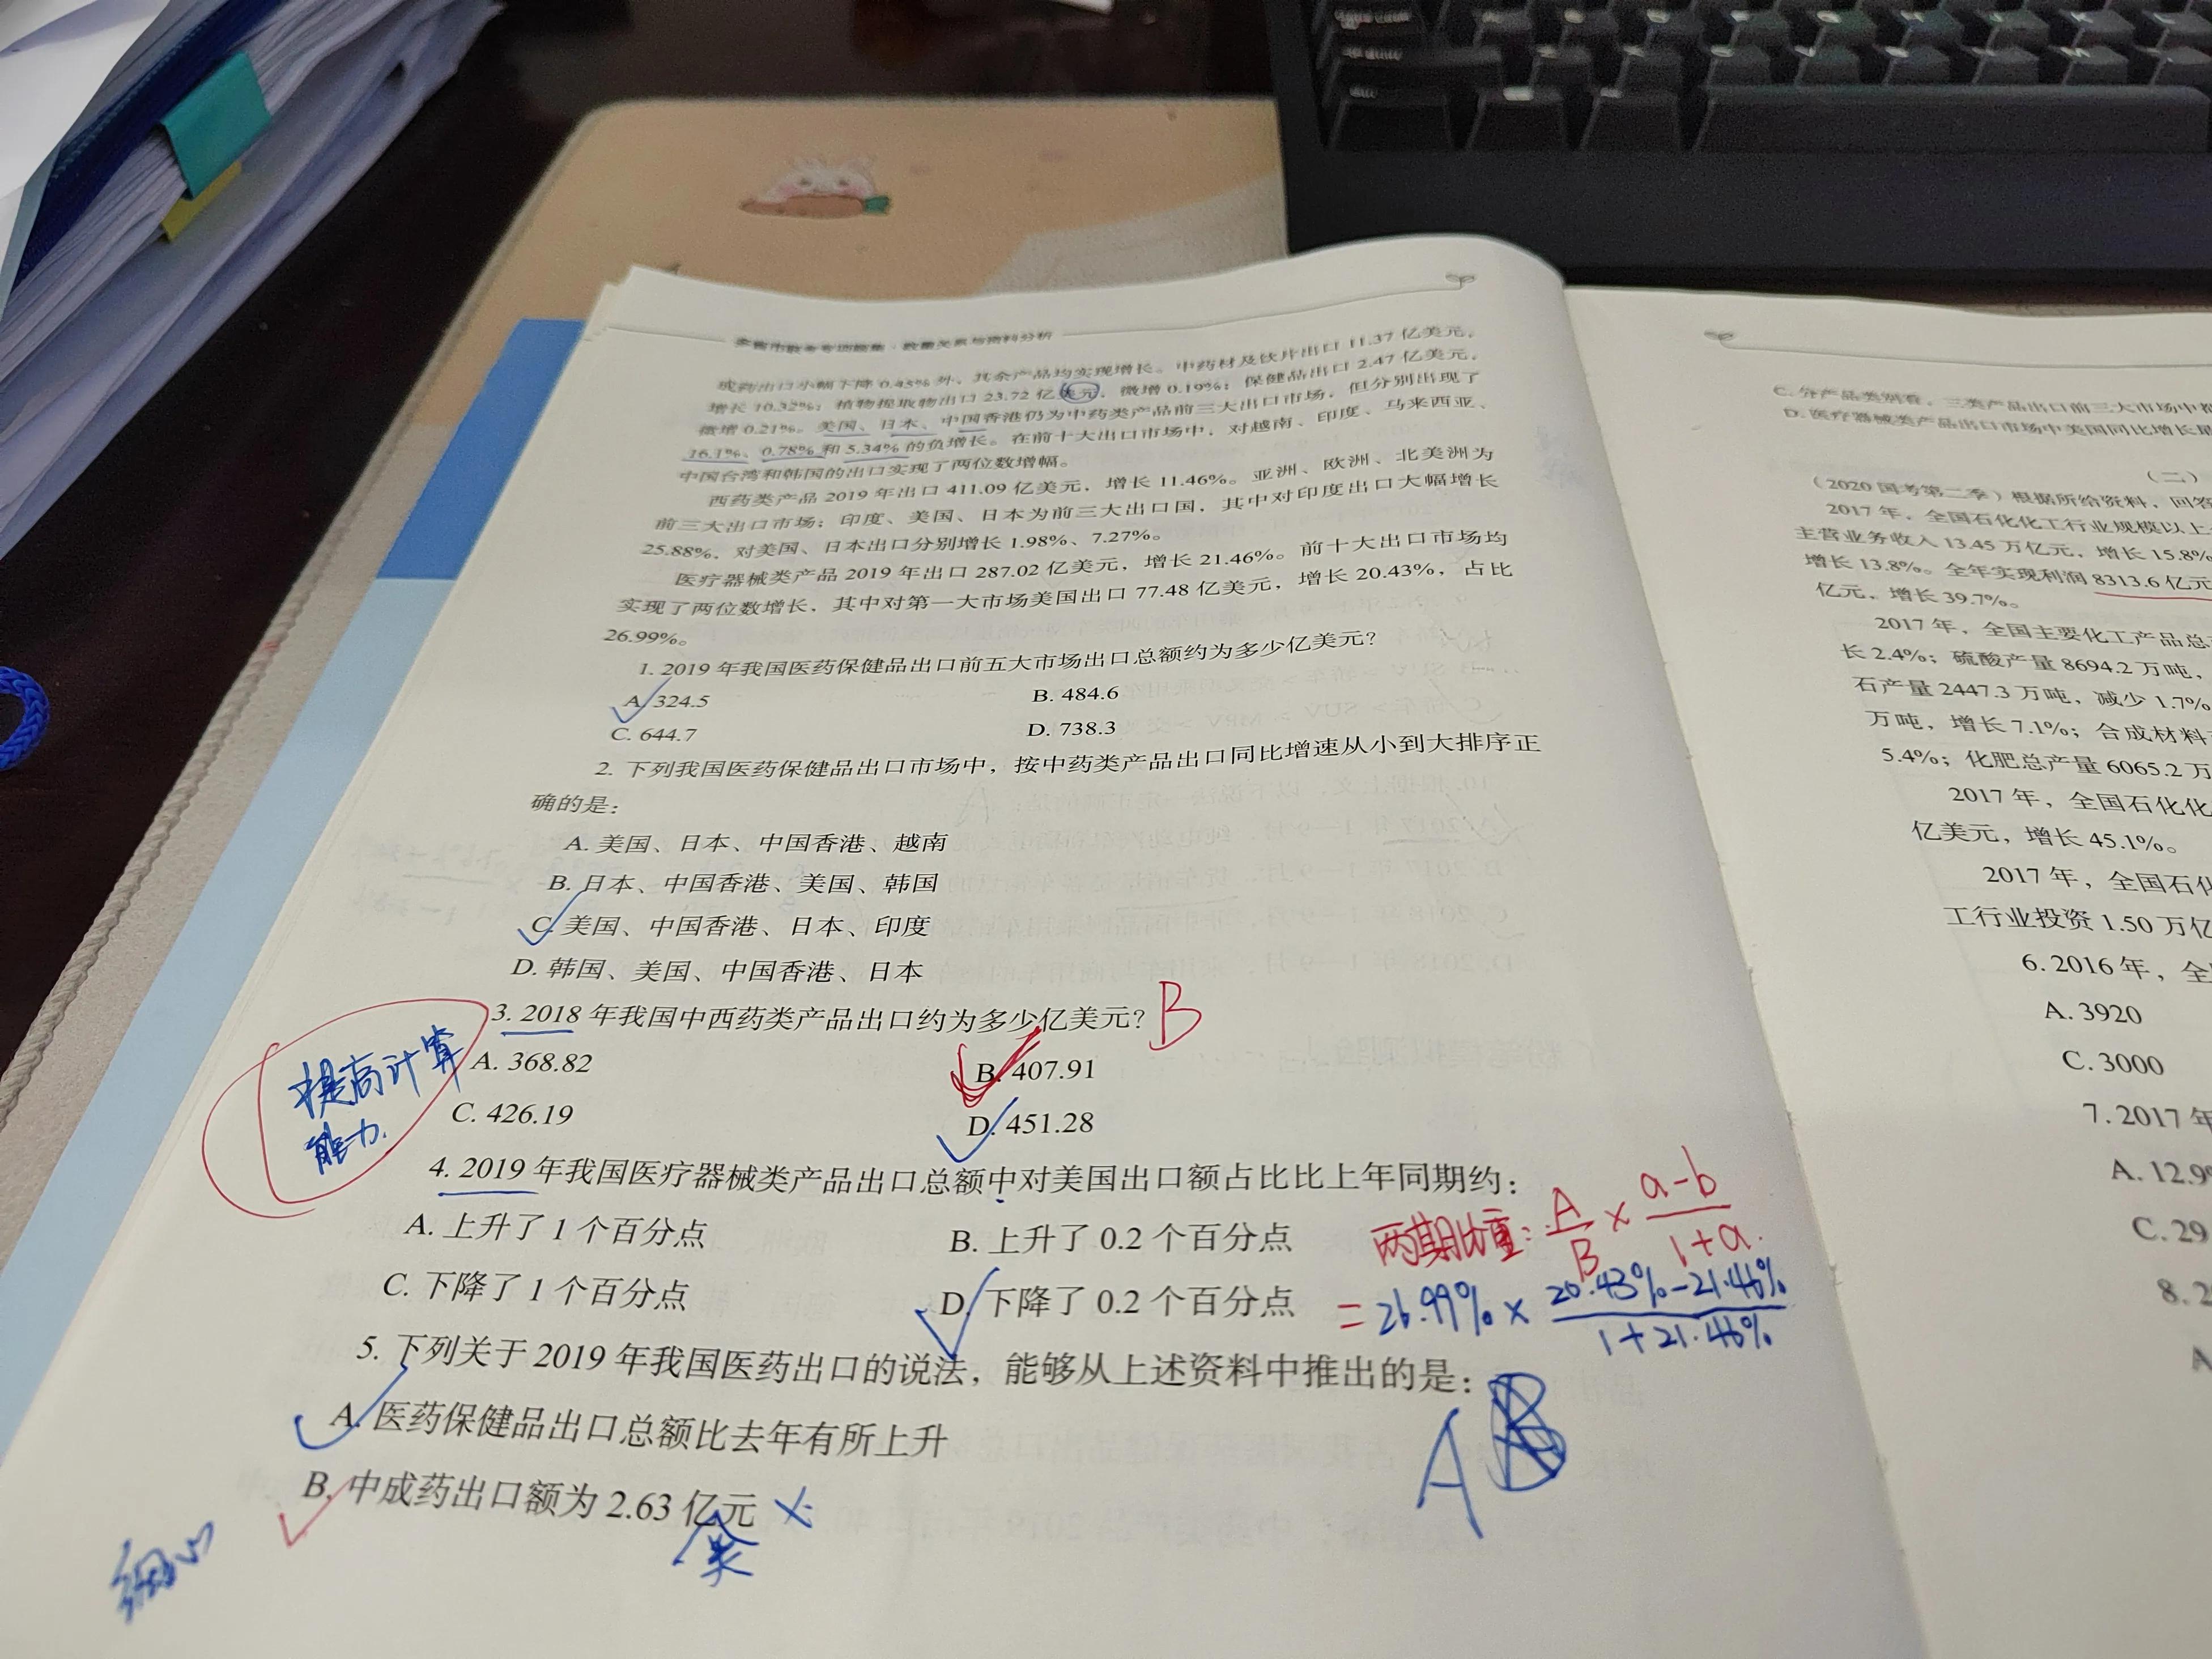 多省市联考专项题集·数量关系与资料分析
成药出口小幅下降 0.45% 外，其余产品均实现增长。中药材及饮片出口 11.37 亿美元，
增长 10.32%；植物提取物出口 23.72 亿美元，微增 0.19%；保健品出口 2.47 亿美元，
微增 0.21%。美国、日本、中国香港仍为中药类产品前三大出口市场，但分别出现了
16.1%、0.78% 和 5.34% 的负增长。在前十大出口市场中，对越南、印度、马来西亚、
中国台湾和韩国的出口实现了两位数增幅。
西药类产品 2019 年出口 411.09 亿美元，增长 11.46%。亚洲、欧洲、北美洲为
前三大出口市场；印度、美国、日本为前三大出口国，其中对印度出口大幅增长
25.88%，对美国、日本出口分别增长 1.98%、7.27%。
医疗器械类产品 2019 年出口 287.02 亿美元，增长 21.46%。前十大出口市场均
实现了两位数增长，其中对第一大市场美国出口 77.48 亿美元，增长 20.43%，占比
26.99%。
1. 2019 年我国医药保健品出口前五大市场出口总额约为多少亿美元？
A. 324.5
B. 484.6
C. 644.7
D. 738.3
2. 下列我国医药保健品出口市场中，按中药类产品出口同比增速从小到大排序正
确的是：
A. 美国、日本、中国香港、越南
B. 日本、中国香港、美国、韩国
C. 美国、中国香港、日本、印度
D. 韩国、美国、中国香港、日本
3. 2018 年我国中西药类产品出口约为多少亿美元？ B
提高计算
能力.
A. 368.82
B. 407.91
C. 426.19
D. 451.28
4. 2019 年我国医疗器械类产品出口总额中对美国出口额占比比上年同期约：
A. 上升了 1 个百分点
B. 上升了 0.2 个百分点
两期比重: A/B × a-b/1+a.
C. 下降了 1 个百分点
D. 下降了 0.2 个百分点
= 26.99% × 20.43%-21.46%/1+21.46%
5. 下列关于 2019 年我国医药出口的说法，能够从上述资料中推出的是：
A
A. 医药保健品出口总额比去年有所上升
B. 中成药出口额为 2.63 亿元 ×
美
细心
C. 分产品类别看，三类产品出口前三大市场中
D. 医疗器械类产品出口市场中美国同比增长
（二）
（2020 国考第二季）根据所给资料，回答
2017 年，全国石化化工行业规模以上
主营业务收入 13.45 万亿元，增长 15.8%
增长 13.8%。全年实现利润 8313.6 亿元
亿元，增长 39.7%。
2017 年，全国主要化工产品总
长 2.4%；硫酸产量 8694.2 万吨，
石产量 2447.3 万吨，减少 1.7%
万吨，增长 7.1%；合成材料
5.4%；化肥总产量 6065.2 万
2017 年，全国石化化
亿美元，增长 45.1%。
2017 年，全国石化
工行业投资 1.50 万亿
6. 2016 年，全
A. 3920
C. 3000
7. 2017 年
A. 12.9
C. 29
8. 2
A